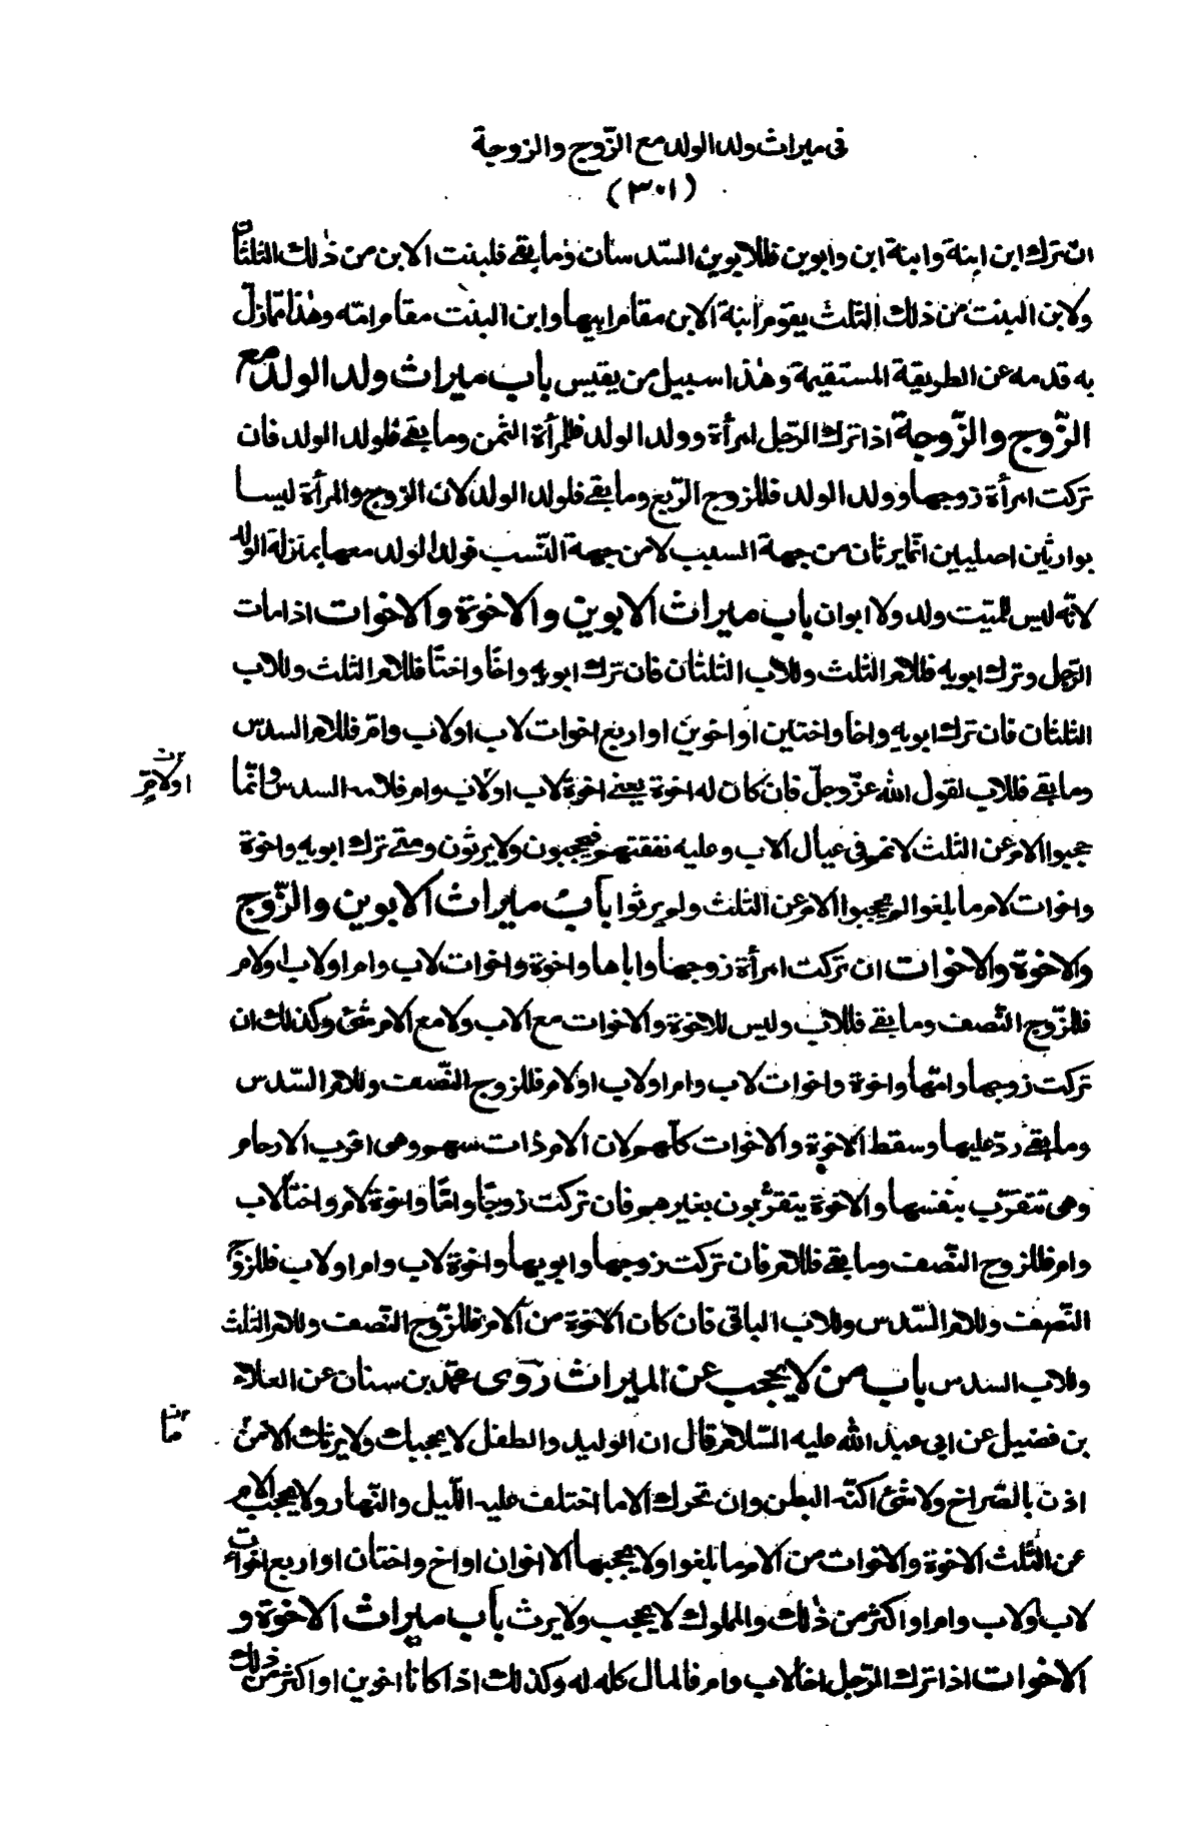 فى ميراث ولد الولد مع الزّوج والزوجة
(٣٠١)
ان ترك ابن ابنة وابنة ابن وابوين فللابوين السّدسان وما بقى فلبنت الابن من ذٰلك الثلثان
ولابن البنت من ذلك الثلث يقوم ابنة الابن مقام ابيها وابن البنت مقام امّه وهٰذا ممّا زلّ
به قدمه عن الطريقة المستقيمة وهٰذا سبيل من يقيس باب ميراث ولد الولد مع
الزّوج والزّوجة اذا ترك الرّجل امرأة وولد الولد فللمرأة الثمن وما بقى فلولد الولد فان
تركت امرأة زوجها وولد الولد فللزوج الرّبع وما بقى فلولد الولد لان الزوج والمرأة ليسا
بوارثين اصليين انّما يرثان من جهة السبب لا من جهة النّسب فولد الولد معهما بمنزلة الولد
لانّه ليس للميّت ولد ولا ابوان باب ميراث الابوين والاخوة والاخوات اذا مات
الرّجل وترك ابويه فللام الثلث وللاب الثلثان فان ترك ابويه واخًا واختًا فللام الثلث وللاب
الثلثان فان ترك ابويه واخا واختين او اخوين او اربع اخوات لاب او لاب وامّ فللام السدس
وما بقى فللاب لقول الله عزّوجلّ فان كان له اخوة يعنى اخوة لاب او لاب وام فلامه السدس وانّما
او لامٍّ
حجبوا الام عن الثلث لانهم فى عيال الاب وعليه نفقتهم فيحجبون ولا يرثون ومتى ترك ابويه واخوة
واخوات لام ما بلغوا لم يحجبوا الام عن الثلث ولم يرثوا باب ميراث الابوين والزّوج
والاخوة والاخوات ان تركت امرأة زوجها واباها واخوة واخوات لاب وام او لاب او لام
فللزّوج النّصف وما بقى فللاب وليس للاخوة والاخوات مع الاب ولا مع الام شئ وكذلك ان
تركت زوجها وامّها واخوة واخوات لاب وام او لاب او لام فللزوج النّصف وللام السّدس
وما بقى ردّ عليها وسقط الاخوة والاخوات كلّهم لان الام ذات سهم وهى اقرب الارحام
وهى تتقرّب بنفسها والاخوة يتقرّبون بغيرهم فان تركت زوجًا وامًّا واخوة لام واختًا لاب
وام فللزوج النّصف وما بقى فللام فان تركت زوجها وابويها واخوة لاب وام او لاب فللزوج
النّصف وللام السّدس وللاب الباقى فان كان الاخوة من الام فللزّوج النّصف وللام الثلث
وللاب السدس باب من لا يحجب عن الميراث روى محمّد بن سنان عن العلاء
بن فضيل عن ابى عبد الله عليه السّلام قال ان الوليد والطفل لا يحجبك ولا يرثك الا من
ما
اذن بالصّراخ ولا شئ اكنّه البطن وان تحرك الا ما اختلف عليه اللّيل والنّهار ولا يحجب الام
عن الثّلث الاخوة والاخوات من الام ما بلغوا ولا يحجبها الا اخوان او اخ واختان او اربع اخوات
لاب او لاب وام او اكثر من ذٰلك والمملوك لا يحجب ولا يرث باب ميراث الاخوة و
الاخوات اذا ترك الرّجل اخا لاب وام فالمال كله له وكذلك اذا كانا اخوين او اكثر من ذلك